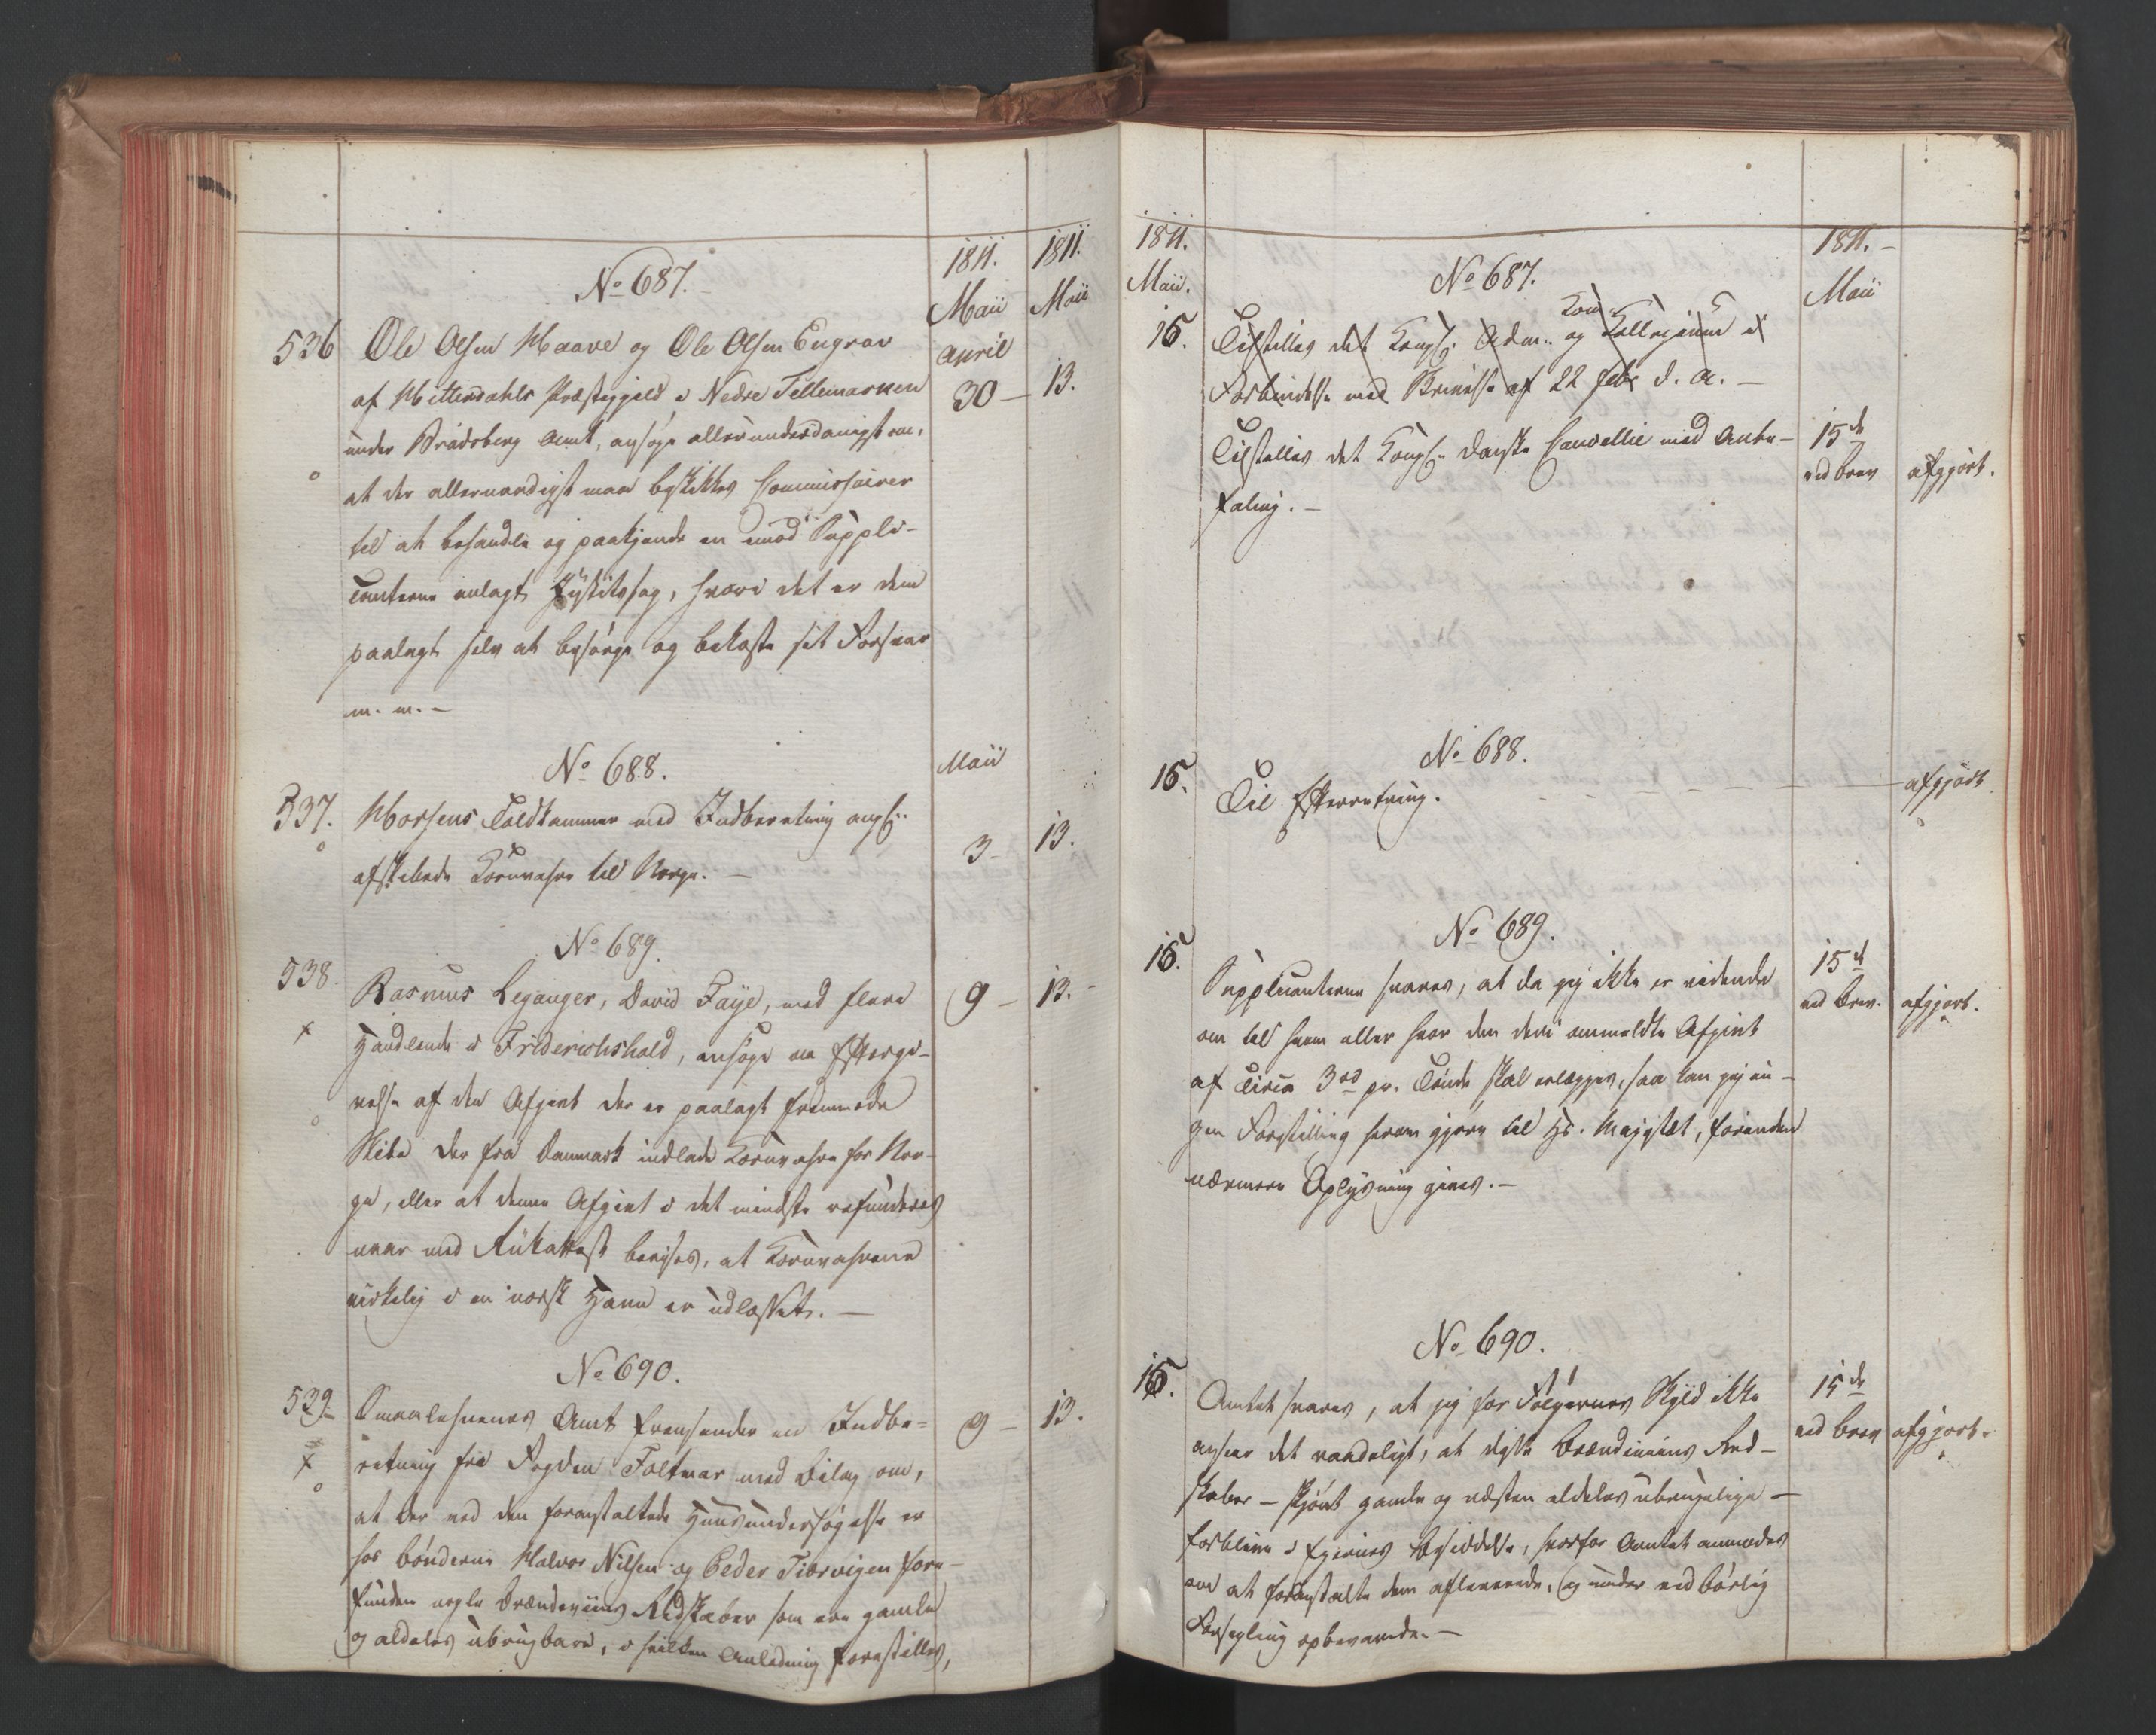 1811.
1811.
No 687.
Maii
Maii
536
Ole Olsen Haave og Ole Olsen Engrav
april
af Hitterdahls Præstegjeld i Nedre Tellemarken
30 —
13.
under Bradsberg Amt, ansøge allerunderdanigst om,
at der allernaadigst maa beskikkes Commissairer
til at behandle og paakjende en imod Suppli-
canterne anlagt Justitssag, hvori det er dem
paalagt selv at besørge og bekoste sit Forsvar
m. m. —
No 688.
Maii
537.
Horsens Toldkammer med Indberetning angl.
3 —
13.
afskibede Kornvahre til Norge. —
No 689.
538.
Rasmus Leganger, David Faÿe, med flere
9 —
13. -
x
Handlende i Friderichshald, ansøge om Efftergi-
velse af den Afgivt der er paalagt fremmede
Skibe der fra Danmark indlade Kornvahre for Nor-
ge, eller at denne Afgivt i det mindste refunderes
naar med Attest bevises, at Kornvahrene
virkelig i en norsk Havn er udlosset. —
No 690.
539
Smaalehnenes Amt fremsender en Indbe=
9 —
13.
x
retning fra Fogden Foltmar med Bilag om,
at der ved den foranstaltede Huusundersøgelse er
hos Bønderne Halvor Nilsen og Peder Tiørvigen fore-
funden nogle Brændeviins Redskaber som ere gamle
og aldeles ubrugbare, i hvilken Anledning forestilles,
1811.
1811. —
Maii.
No 687.
Maii
15.
Tilstilles det Kongl. Adm.. og Collegium i
Forbindelse med Skrivelse af 22 febr d. A. —
Tilstilles det Kongl. danske Cancellie med Anbe-
15de
ved brev
afgjort.
faling. —
No 688.
15.
Til Efterretning.
afgjort
No 689.
15.
Supplicanterne svares, at da jeg ikke er vidende
15de
ved brev.
afgjort.
om til hvem eller hvor den deri ommeldte Afgivt
af circa 3rd pr. Tønde skal erlægges, saa kan jeg in-
gen Forestilling herom gjøre til Hs. Majestæt, forinden
nærmere Oplysning gives. —
No 690.
15.
Amtet svares, at jeg for Følgernes Skyld ikke
15de
ved brev
afgjort.
anseer det raadeligt, at disse Brændeviins Red-
skaber — skjønt gamle og næsten aldeles ubrugelige —
forblive i Eiernes Besiddelse, hvorfor Amtet anmodes
om at foranstalte dem afleverede, og under ved børlig
Forsegling opbevarede. —